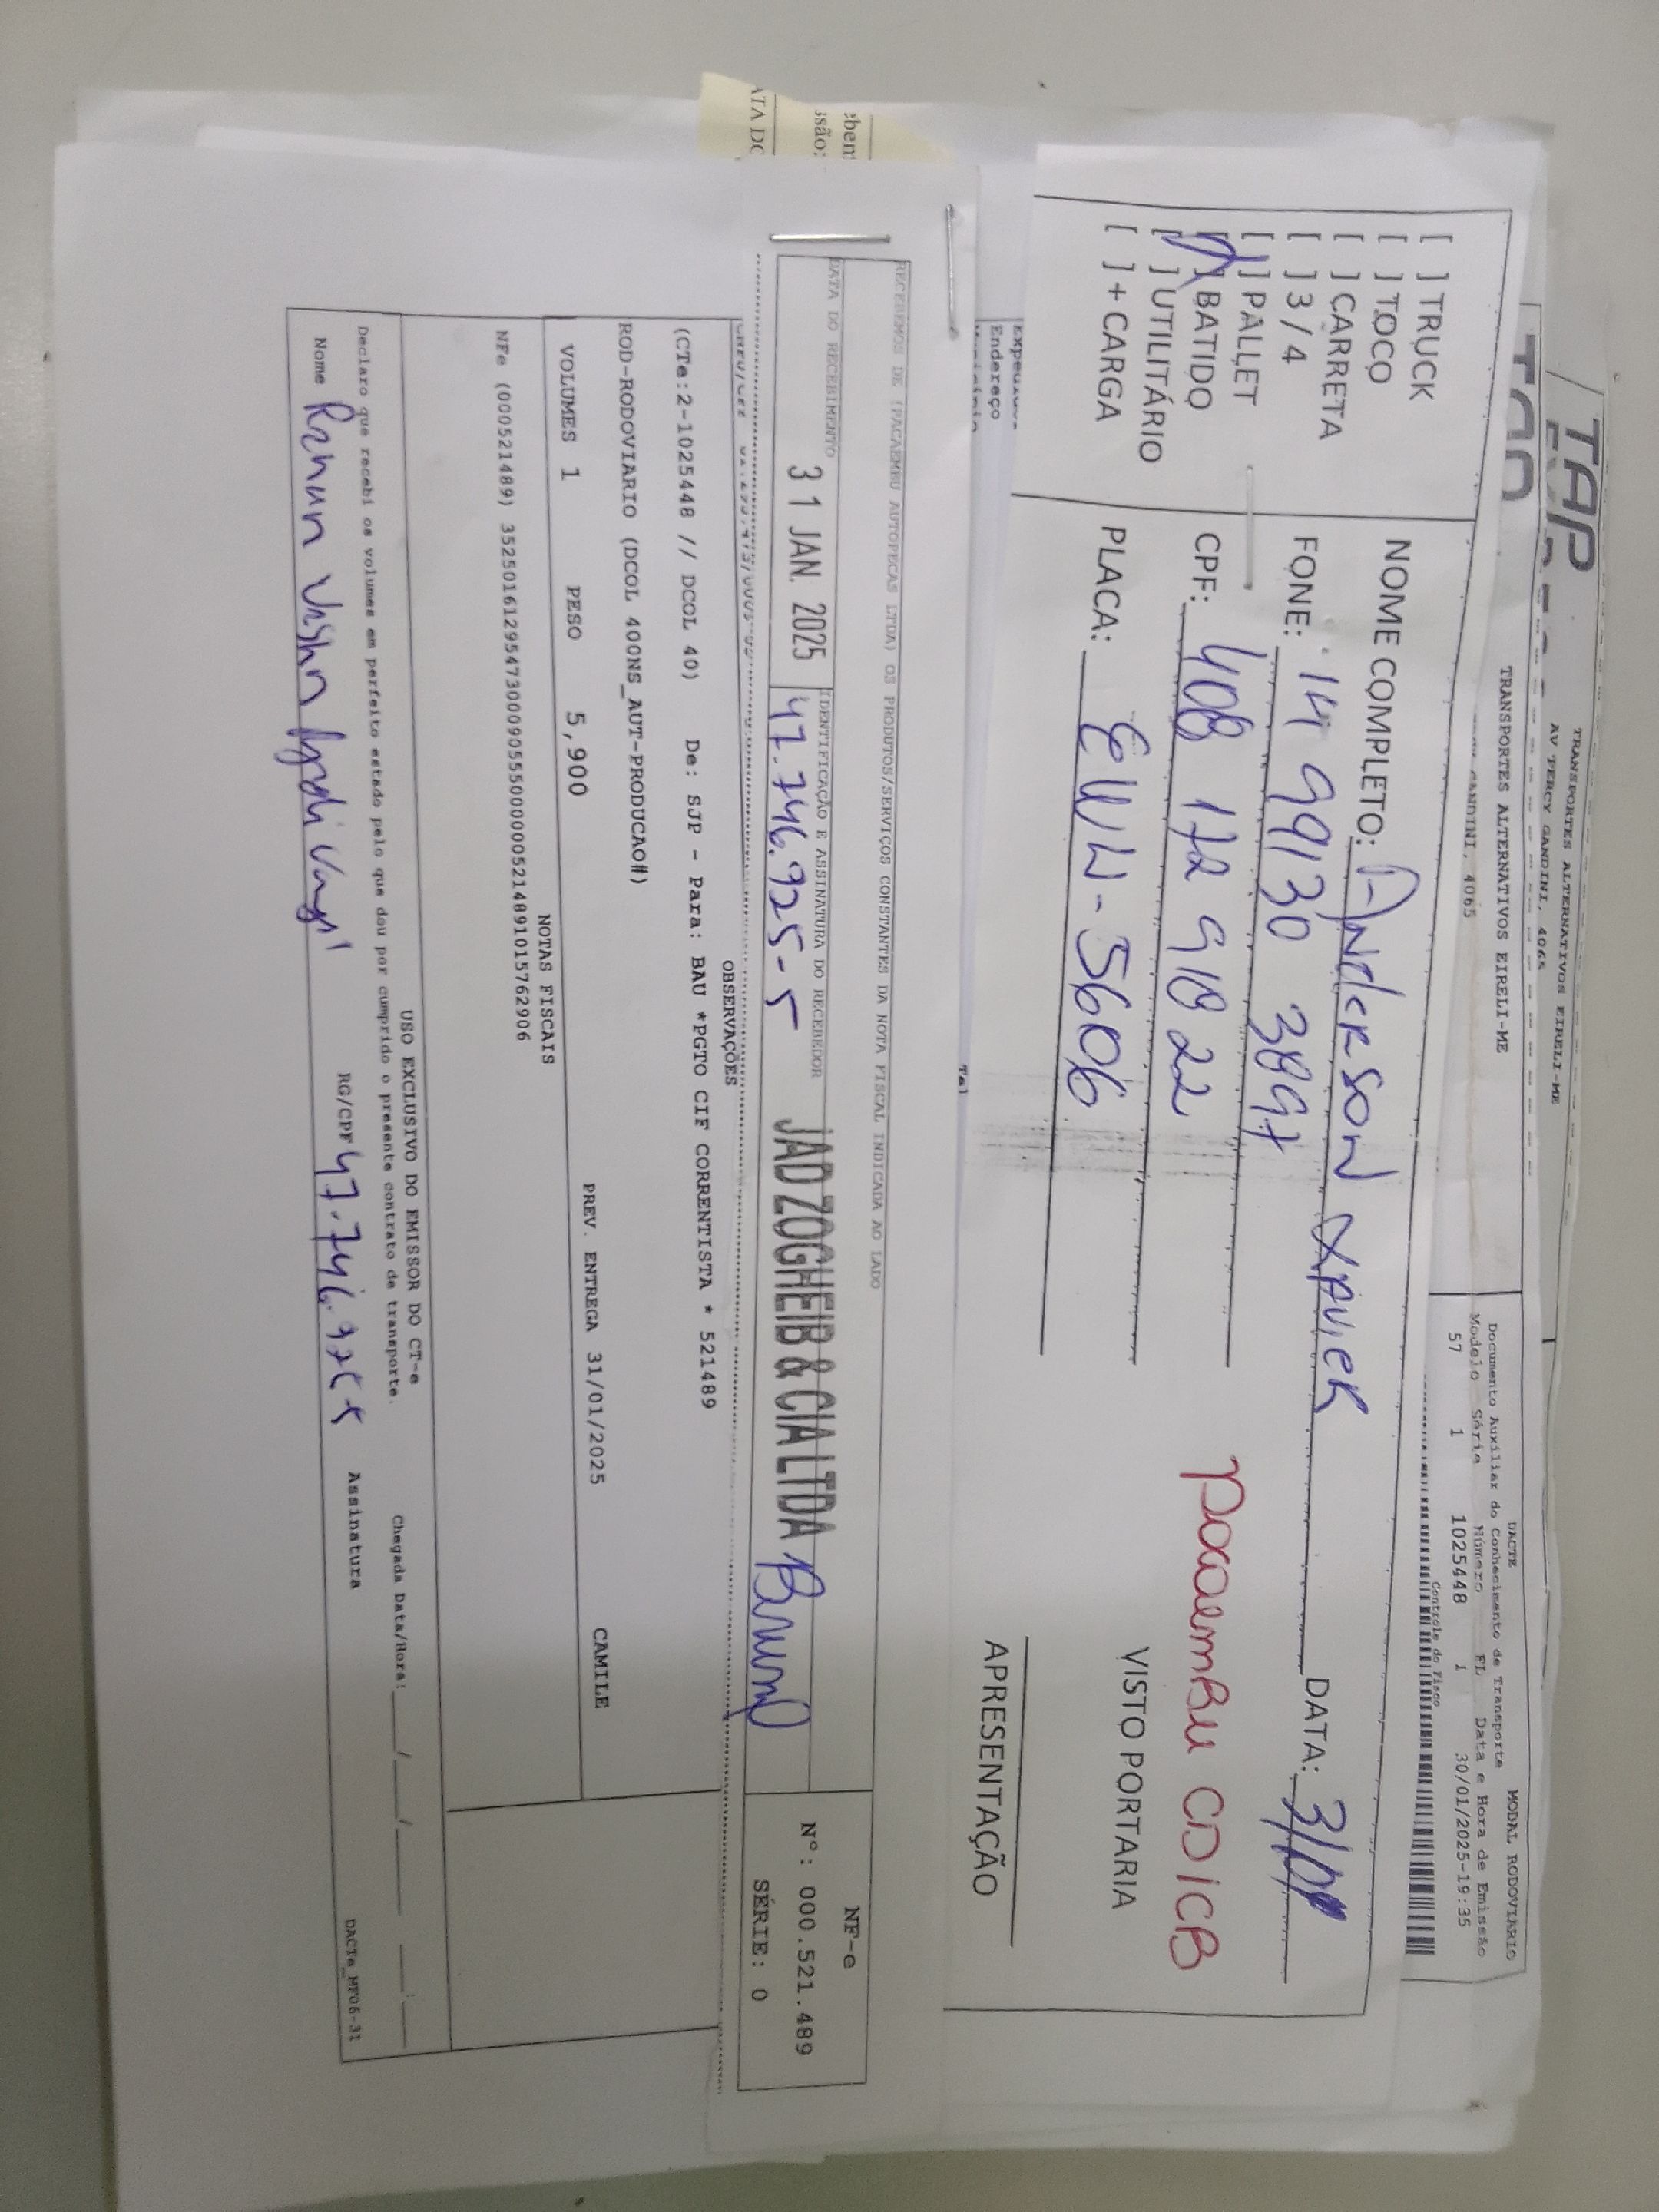 TAP
TRANSPORTES ALTERNATIVOS EIRELI-ME
AV PERCY GANDINI, 4065
TRANSPORTES ALTERNATIVOS EIRELI-ME
GANDINI, 4065
DACTE
Documento Auxiliar do Conhecimento de Transporte
MODAL RODOVIÁRIO
Modelo Série Número FL Data e Hora de Emissão
57 1 1025448 1 30/01/2025-19:35
Controle do Fisco
[ ] TRUCK
[ ] TOCO
[ ] CARRETA
[ ] 3/4
[ ] PALLET
[ ] BATIDO
[ ] UTILITÁRIO
[ ] + CARGA
NOME COMPLETO: Anderson Xavier DATA: 31/01
FONE: 14 99130 3897
CPF: 408 172 918 22
PLACA: EWW-5606
Pacaembu CD ICB
VISTO PORTARIA
APRESENTAÇÃO
Endereço
Tel
RECEBEMOS DE (PACAEMBU AUTOPECAS LTDA) OS PRODUTOS/SERVIÇOS CONSTANTES DA NOTA FISCAL INDICADA AO LADO
DATA DO RECEBIMENTO
31 JAN. 2025
IDENTIFICAÇÃO E ASSINATURA DO RECEBEDOR
47.746.925-5
JAD ZOGHEIB & CIA LTDA
NF-e
Nº: 000.521.489
SÉRIE: 0
OBSERVAÇÕES
(CTe:2-1025448 // DCOL 40) De: SJP - Para: BAU *PGTO CIF CORRENTISTA * 521489
ROD-RODOVIARIO (DCOL 400NS_AUT-PRODUCAO#)
VOLUMES 1 PESO 5,900 PREV. ENTREGA 31/01/2025 CAMILE
NOTAS FISCAIS
NFe (000521489) 35250161295473000905550000005214891015762906
USO EXCLUSIVO DO EMISSOR DO CT-e
Declaro que recebi os volumes em perfeito estado pelo que dou por cumprido o presente contrato de transporte.
Chegada Data/Hora: / /
Nome RG/CPF 47.746.925-5 Assinatura
DACTe_MF06-31